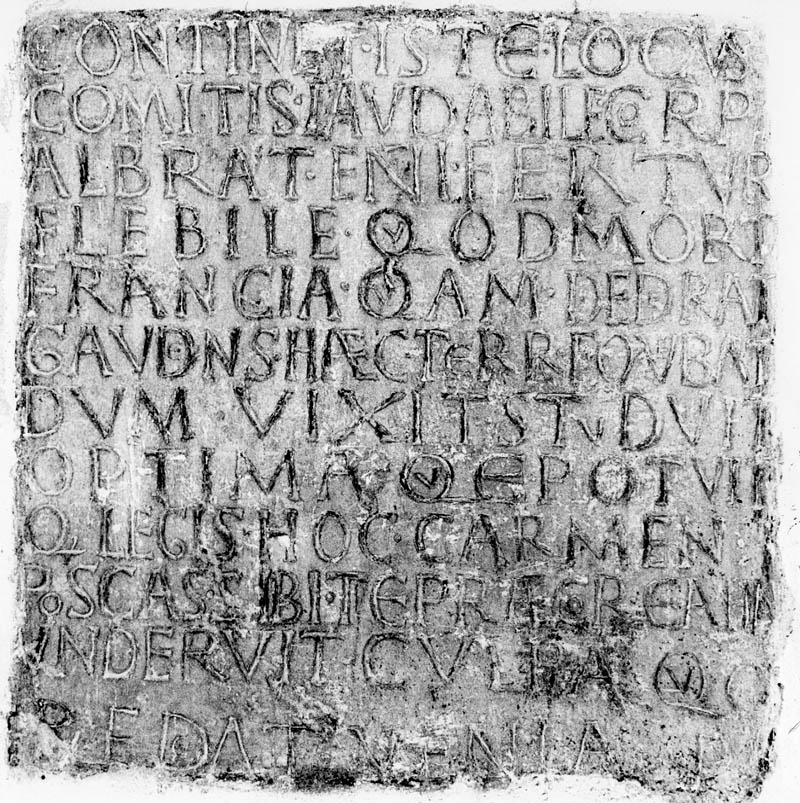 CONTINET·ISTE·LOCVS
COMITIS·LAVDABILE CRP
ALBRAT·ENI·FERTVR
FLEBILE·QVOD MORT
FRANCIA·QVAM·DEDRAT
GAVDNS·HÆC TERR
DVM VIXIT STVDVIT
OPTIMA QVE POTVIT
Q LEGIS·HOC·CARMEN
POSCAS SIBI·TE
CVLPA QVO
REDAT VENIA